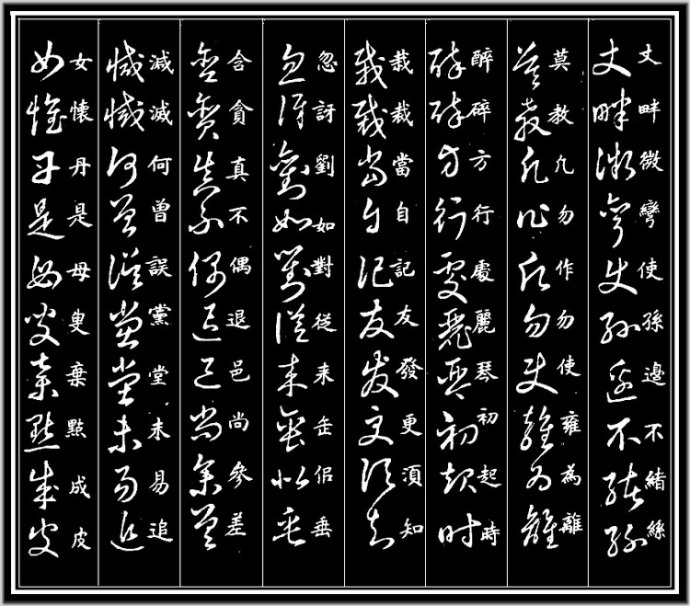 丈畔微彎使孫邊不緒絲
莫教凣勿作勿使雍為離
醉碎方行處麗琴初起時
栽裁當自記友發更湏知
忽訝劉如對從來缶佀垂
含貪真不偶退邑尚參差
減滅何曾誤黨堂未易追
女懷丹是母叟棄點成皮